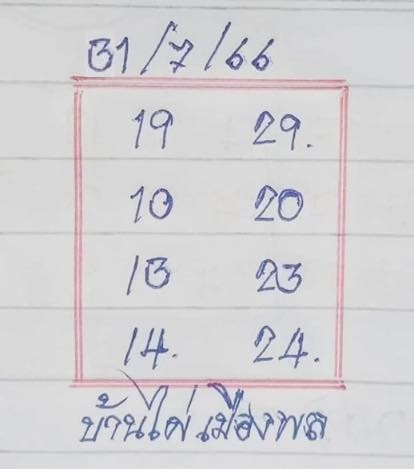 31/7/66
19 29.
10 20
13 23
14. 24.
บ้านไผ่ เมืองพล